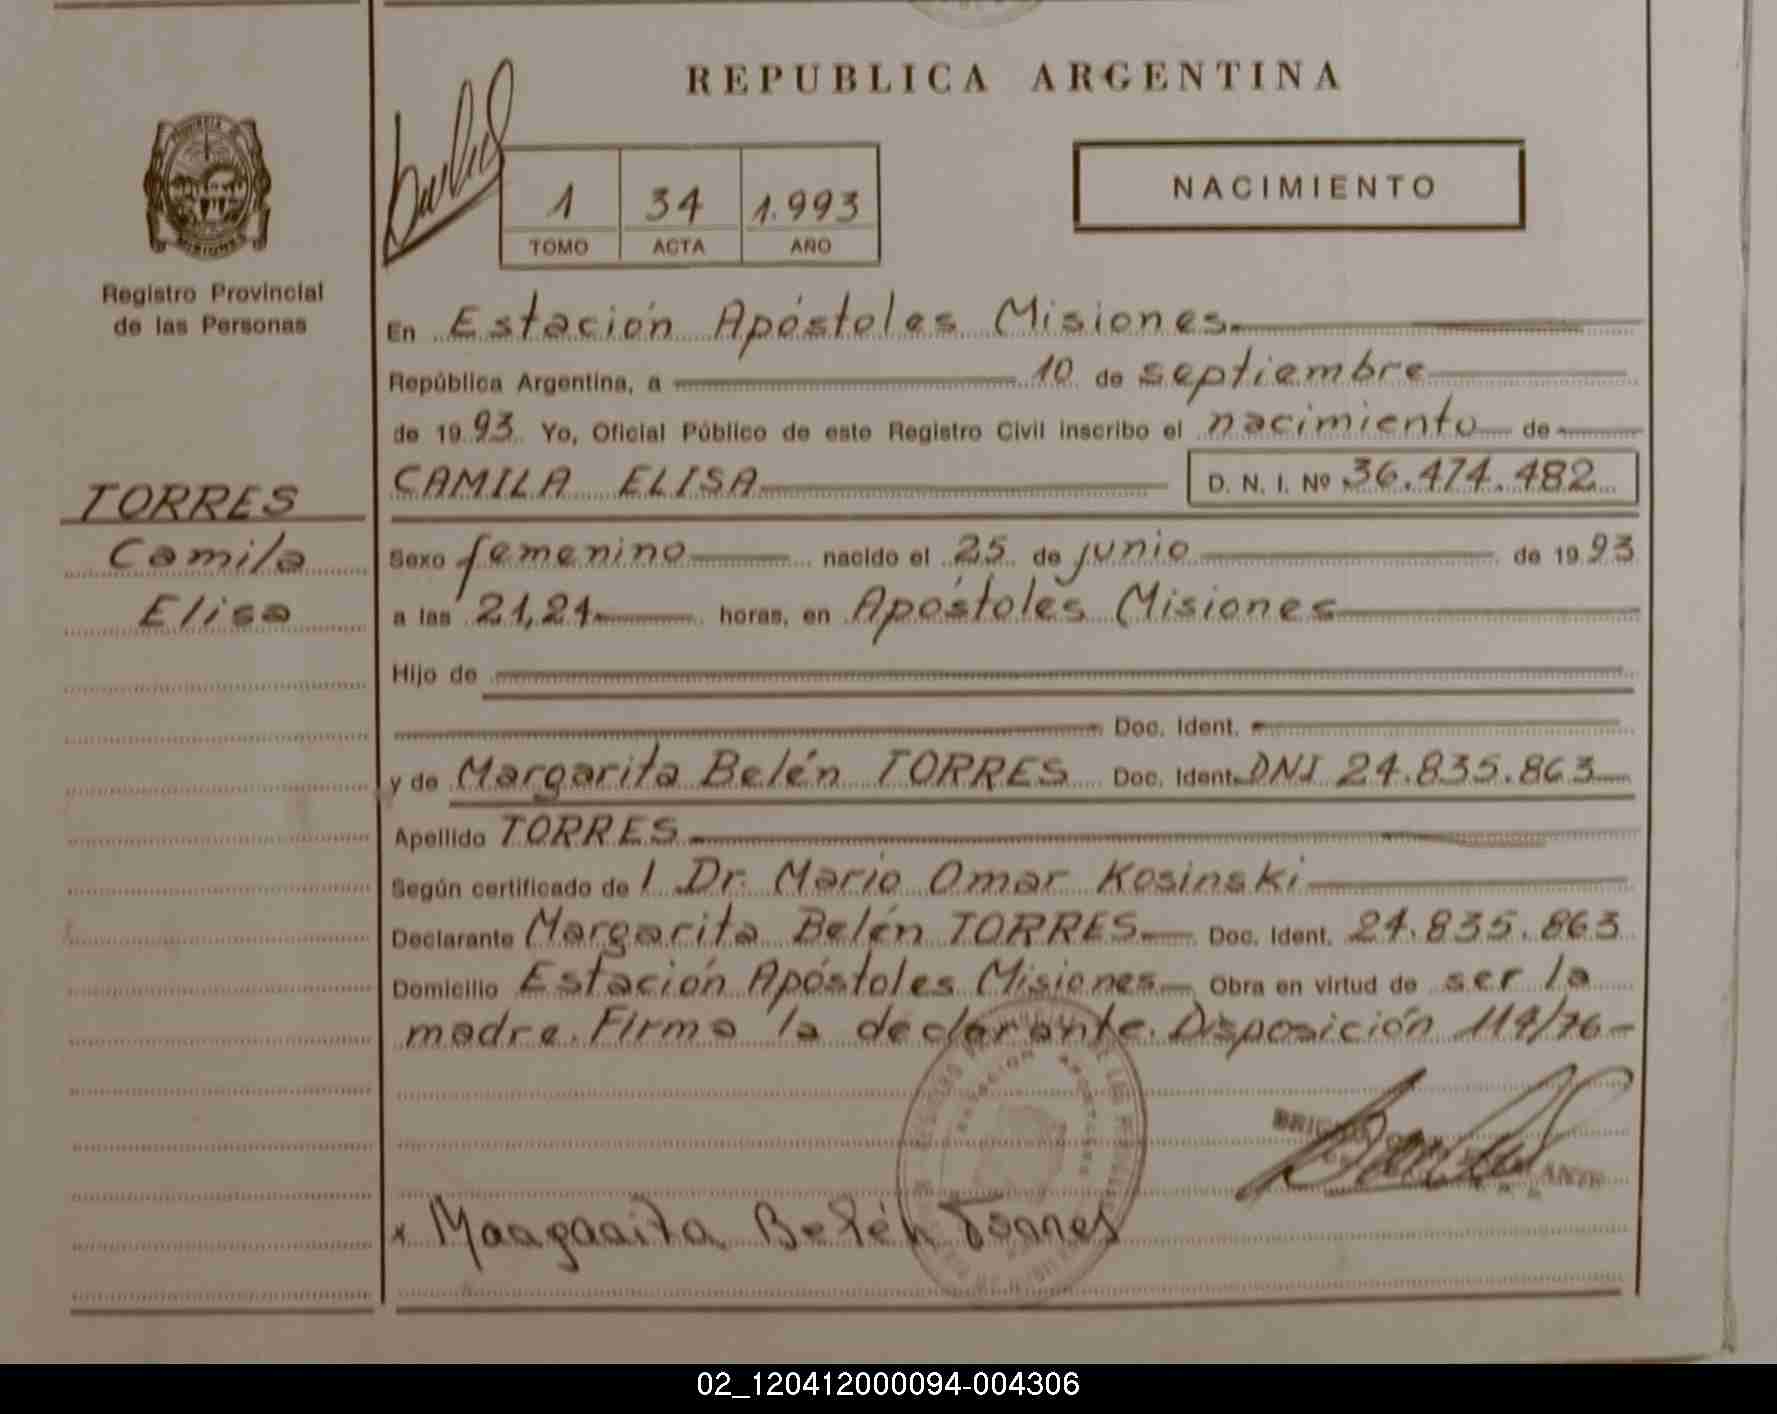 REPUBLICA ARGENTINA
NACIMIENTO
1 34 1.993
TOMO ACTA AÑO
Registro Provincial
de las Personas
TORRES
Camila
Elisa
En Estación Apóstoles Misiones
República Argentina, a 10 de septiembre
de 1993 Yo, Oficial Público de este Registro Civil inscribo el nacimiento de
CAMILA ELISA D. N. I. Nº 36.474.482
Sexo femenino nacido el 25 de junio de 1993
a las 21,21 horas, en Apóstoles Misiones
Hijo de
Doc. Ident.
y de Margarita Belén TORRES Doc. Ident. DNI 24.835.863
Apellido TORRES
Según certificado de l Dr. Mario Omar Kosinski
Declarante Margarita Belén TORRES Doc. Ident. 24.835.863
Domicilio Estación Apóstoles Misiones Obra en virtud de ser la
madre. Firma la declarante. Disposición 114/76
x Margarita Belén Torres
02_120412000094-004306